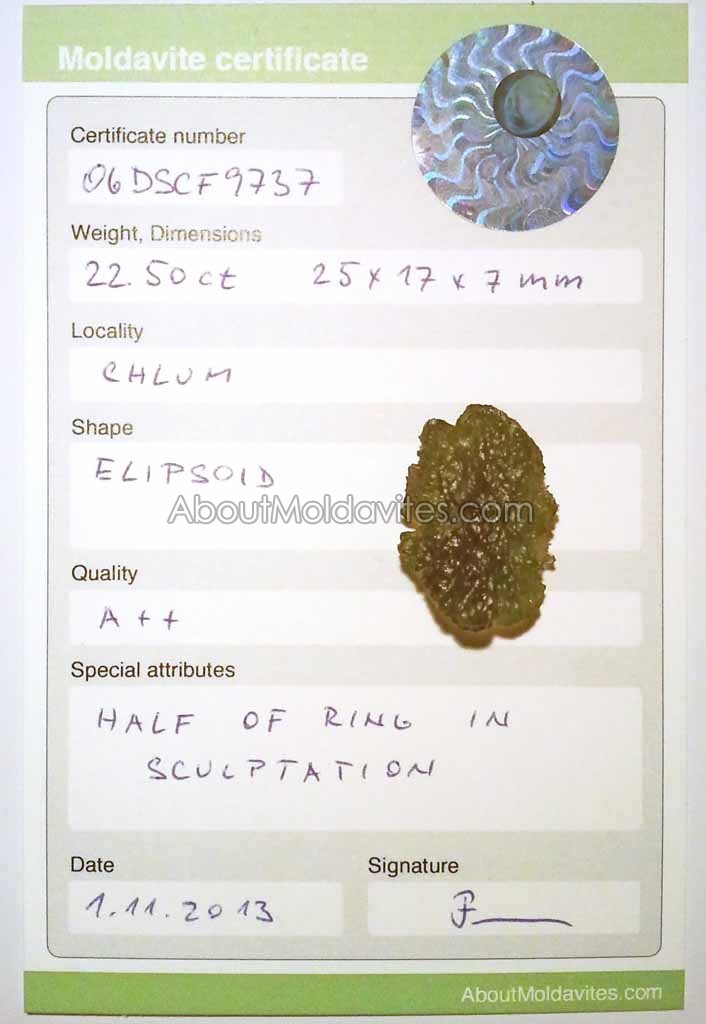 Moldavite certificate
Certificate number
06DSCF9737
Weight, Dimensions
22.50 ct 25 x 17 x 7 mm
Locality
CHLUM
Shape
ELIPSOID
AboutMoldavites.com
Quality
A++
Special attributes
HALF OF RING IN
SCULPTATION
Date Signature
1.11.2013
AboutMoldavites.com